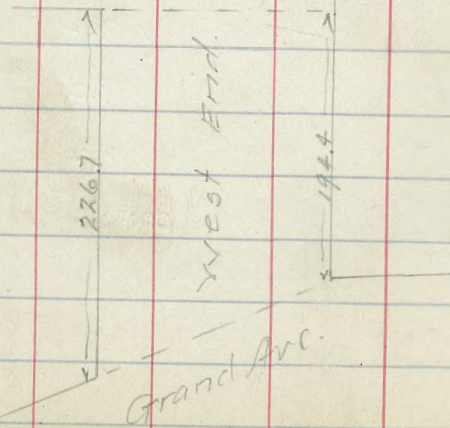 226.7
West End.
194.4
Grand Ave.